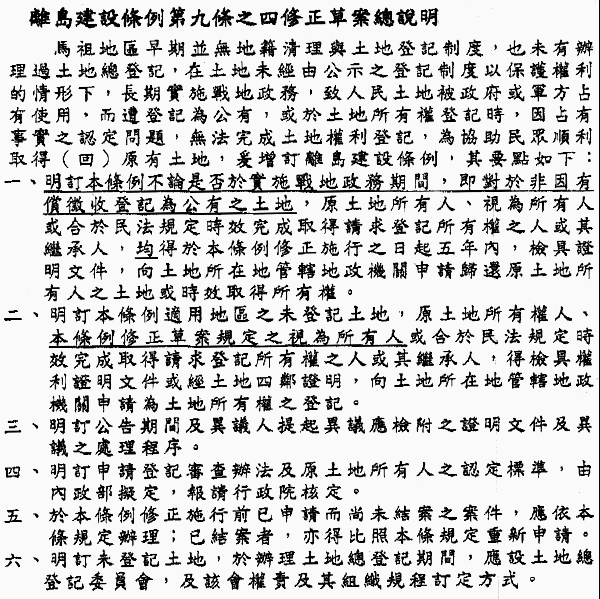 離島建設條例第九條之四修正草案總說明
馬祖地區早期並無地籍清理與土地登記制度，也未有辦
理過土地總登記，在土地未經由公示之登記制度以保護權利
的情形下，長期實施戰地政務，致人民土地被政府或軍方占
有使用，而遭登記為公有，或於土地所有權登記時，因占有
事實之認定問題，無法完成土地權利登記，為協助民眾順利
取得（回）原有土地，爰增訂離島建設條例，其要點如下：
一、明訂本條例不論是否於實施戰地政務期間，即對於非因有
償徵收登記為公有之土地，原土地所有人、視為所有人
或合於民法規定時效完成取得請求登記所有權之人或其
繼承人，均得於本條例修正施行之日起五年內，檢具證
明文件，向土地所在地管轄地政機關申請歸還原土地所
有人之土地或時效取得所有權。
二、明訂本條例適用地區之未登記土地，原土地所有權人、
本條例修正草案規定之視為所有人或合於民法規定時
效完成取得請求登記所有權之人或其繼承人，得檢具權
利證明文件或經土地四鄰證明，向土地所在地管轄地政
機關申請為土地所有權之登記。
三、明訂公告期間及異議人提起異議應檢附之證明文件及異
議之處理程序。
四、明訂申請登記審查辦法及原土地所有人之認定標準，由
內政部擬定，報請行政院核定。
五、於本條例修正施行前已申請而尚未結案之案件，應依本
條規定辦理；已結案者，亦得比照本條規定重新申請。
六、明訂未登記土地，於辦理土地總登記期間，應設土地總
登記委員會，及該會權責及其組織規程訂定方式。